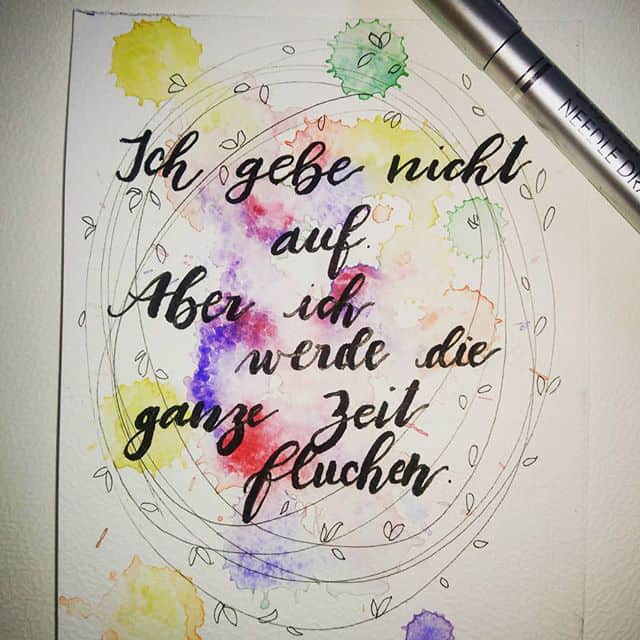 Ich gebe nicht
auf.
Aber ich
werde die
ganze Zeit
fluchen.
NEEDLE